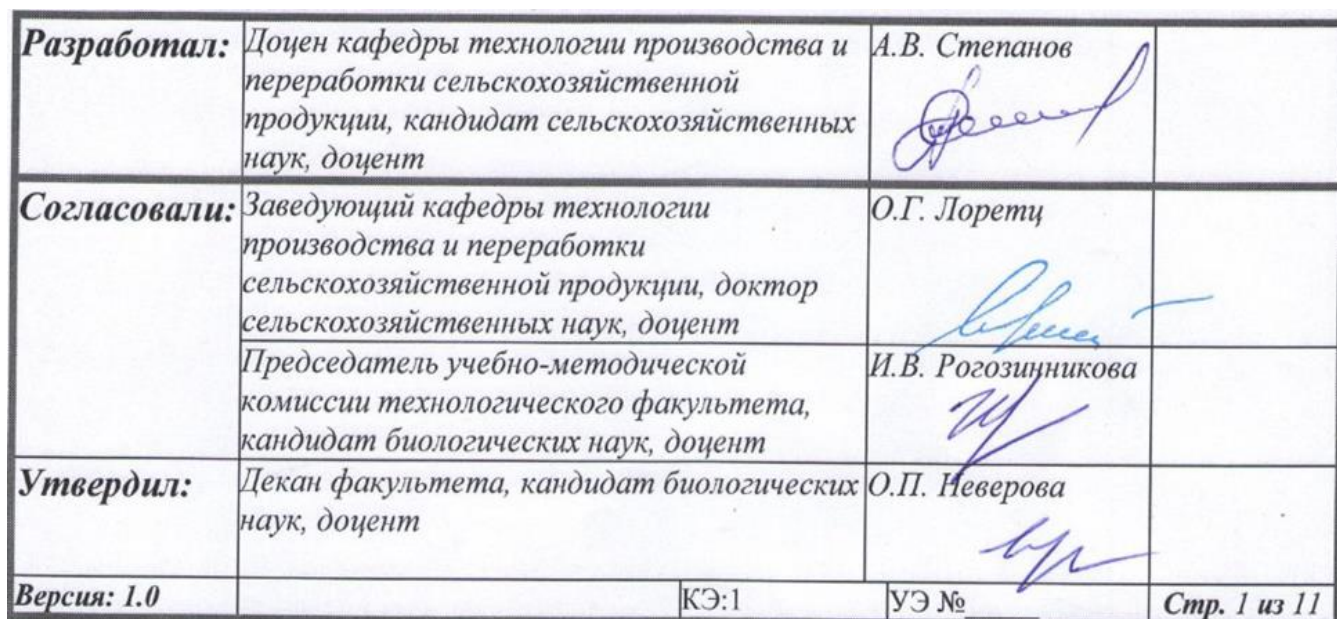 Разработал: Доцен кафедры технологии производства и А.В. Степанов
переработки сельскохозяйственной
продукции, кандидат сельскохозяйственных
наук, доцент
Согласовали: Заведующий кафедры технологии О.Г. Лоретц
производства и переработки
сельскохозяйственной продукции, доктор
сельскохозяйственных наук, доцент
Председатель учебно-методической И.В. Рогозинникова
комиссии технологического факультета,
кандидат биологических наук, доцент
Утвердил: Декан факультета, кандидат биологических О.П. Неверова
наук, доцент
Версия: 1.0 КЭ:1 УЭ №______ Стр. 1 из 11